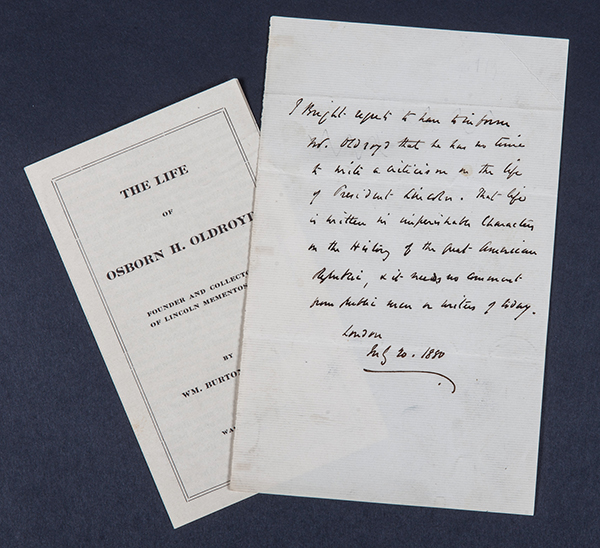 THE LIFE
OF
OSBORN H. OLDROYD
FOUNDER AND COLLECTO
OF LINCOLN MEMENTOS
BY
WM. BURTON
WA
J Bright regrets to have to inform
Mr. Oldroyd that he has no time
to write a criticism on the life
of President Lincoln. That life
is written in imperishable characters
on the History of the great American
Republic, & it needs no comment
from public men or writers of today.
London
July 20. 1880